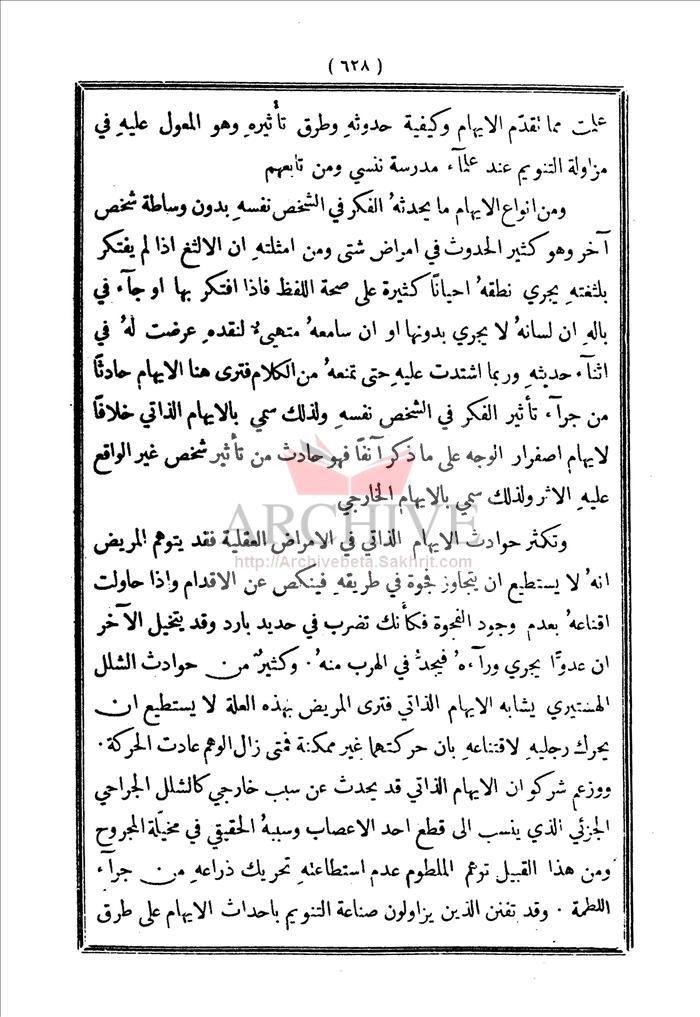 ( ٦٢٨ )
علمت مما تقدّم الايهام وكيفية حدوثهِ وطرق تأثيرهِ وهو المعول عليهِ في
مزاولة التنويم عند علمآء مدرسة ننسي ومن تابعهم
ومن انواع الايهام ما يحدثهُ الفكر في الشخص نفسهِ بدون وساطة شخص
آخر وهو كثير الحدوث في امراض شتى ومن امثلتهِ ان الالثغ اذا لم يفتكر
بلثغتهِ يجري نطقهُ احيانًا كثيرة على صحة اللفظ فاذا افتكر بها او جآء في
بالهِ ان لسانهُ لا يجري بدونها او ان سامعهُ متهيء لنقدهِ عرضت لهُ في
اثنآء حديثهِ وربما اشتدت عليهِ حتى تمنعهُ من الكلام فترى هنا الايهام حادثًا
من جرآء تأثير الفكر في الشخص نفسهِ ولذلك سمي بالايهام الذاتي خلافًا
لايهام اصفرار الوجه على ما ذكر آنفًا فهو حادث من تأثير شخص غير الواقع
عليهِ الاثر ولذلك سمي بالايهام الخارجي
وتكثر حوادث الايهام الذاتي في الامراض العقلية فقد يتوهم المريض
انهُ لا يستطيع ان يتجاوز فجوة في طريقهِ فينكص عن الاقدام واذا حاولت
اقناعهُ بعدم وجود الفجوة فكأنك تضرب في حديد بارد وقد يتخيل الآخر
ان عدوًّا يجري ورآءهُ فيجدّ في الهرب منهُ . وكثيرٌ من حوادث الشلل
الهستيري يشابه الايهام الذاتي فترى المريض بهذه العلة لا يستطيع ان
يحرك رجليهِ لاقتناعهِ بان حركتهما غير ممكنة فمتى زال الوهم عادت الحركة .
ووزعم شركو ان الايهام الذاتي قد يحدث عن سبب خارجي كالشلل الجراحي
الجزئي الذي ينسب الى قطع احد الاعصاب وسببهُ الحقيقي في مخيّلة المجروح
ومن هذا القبيل توهم الملطوم عدم استطاعتهِ تحريك ذراعهِ من جرآء
اللطمة . وقد تفنن الذين يزاولون صناعة التنويم باحداث الايهام على طرق
ARCHIVE
http://Archivebeta.Sakhrit.com